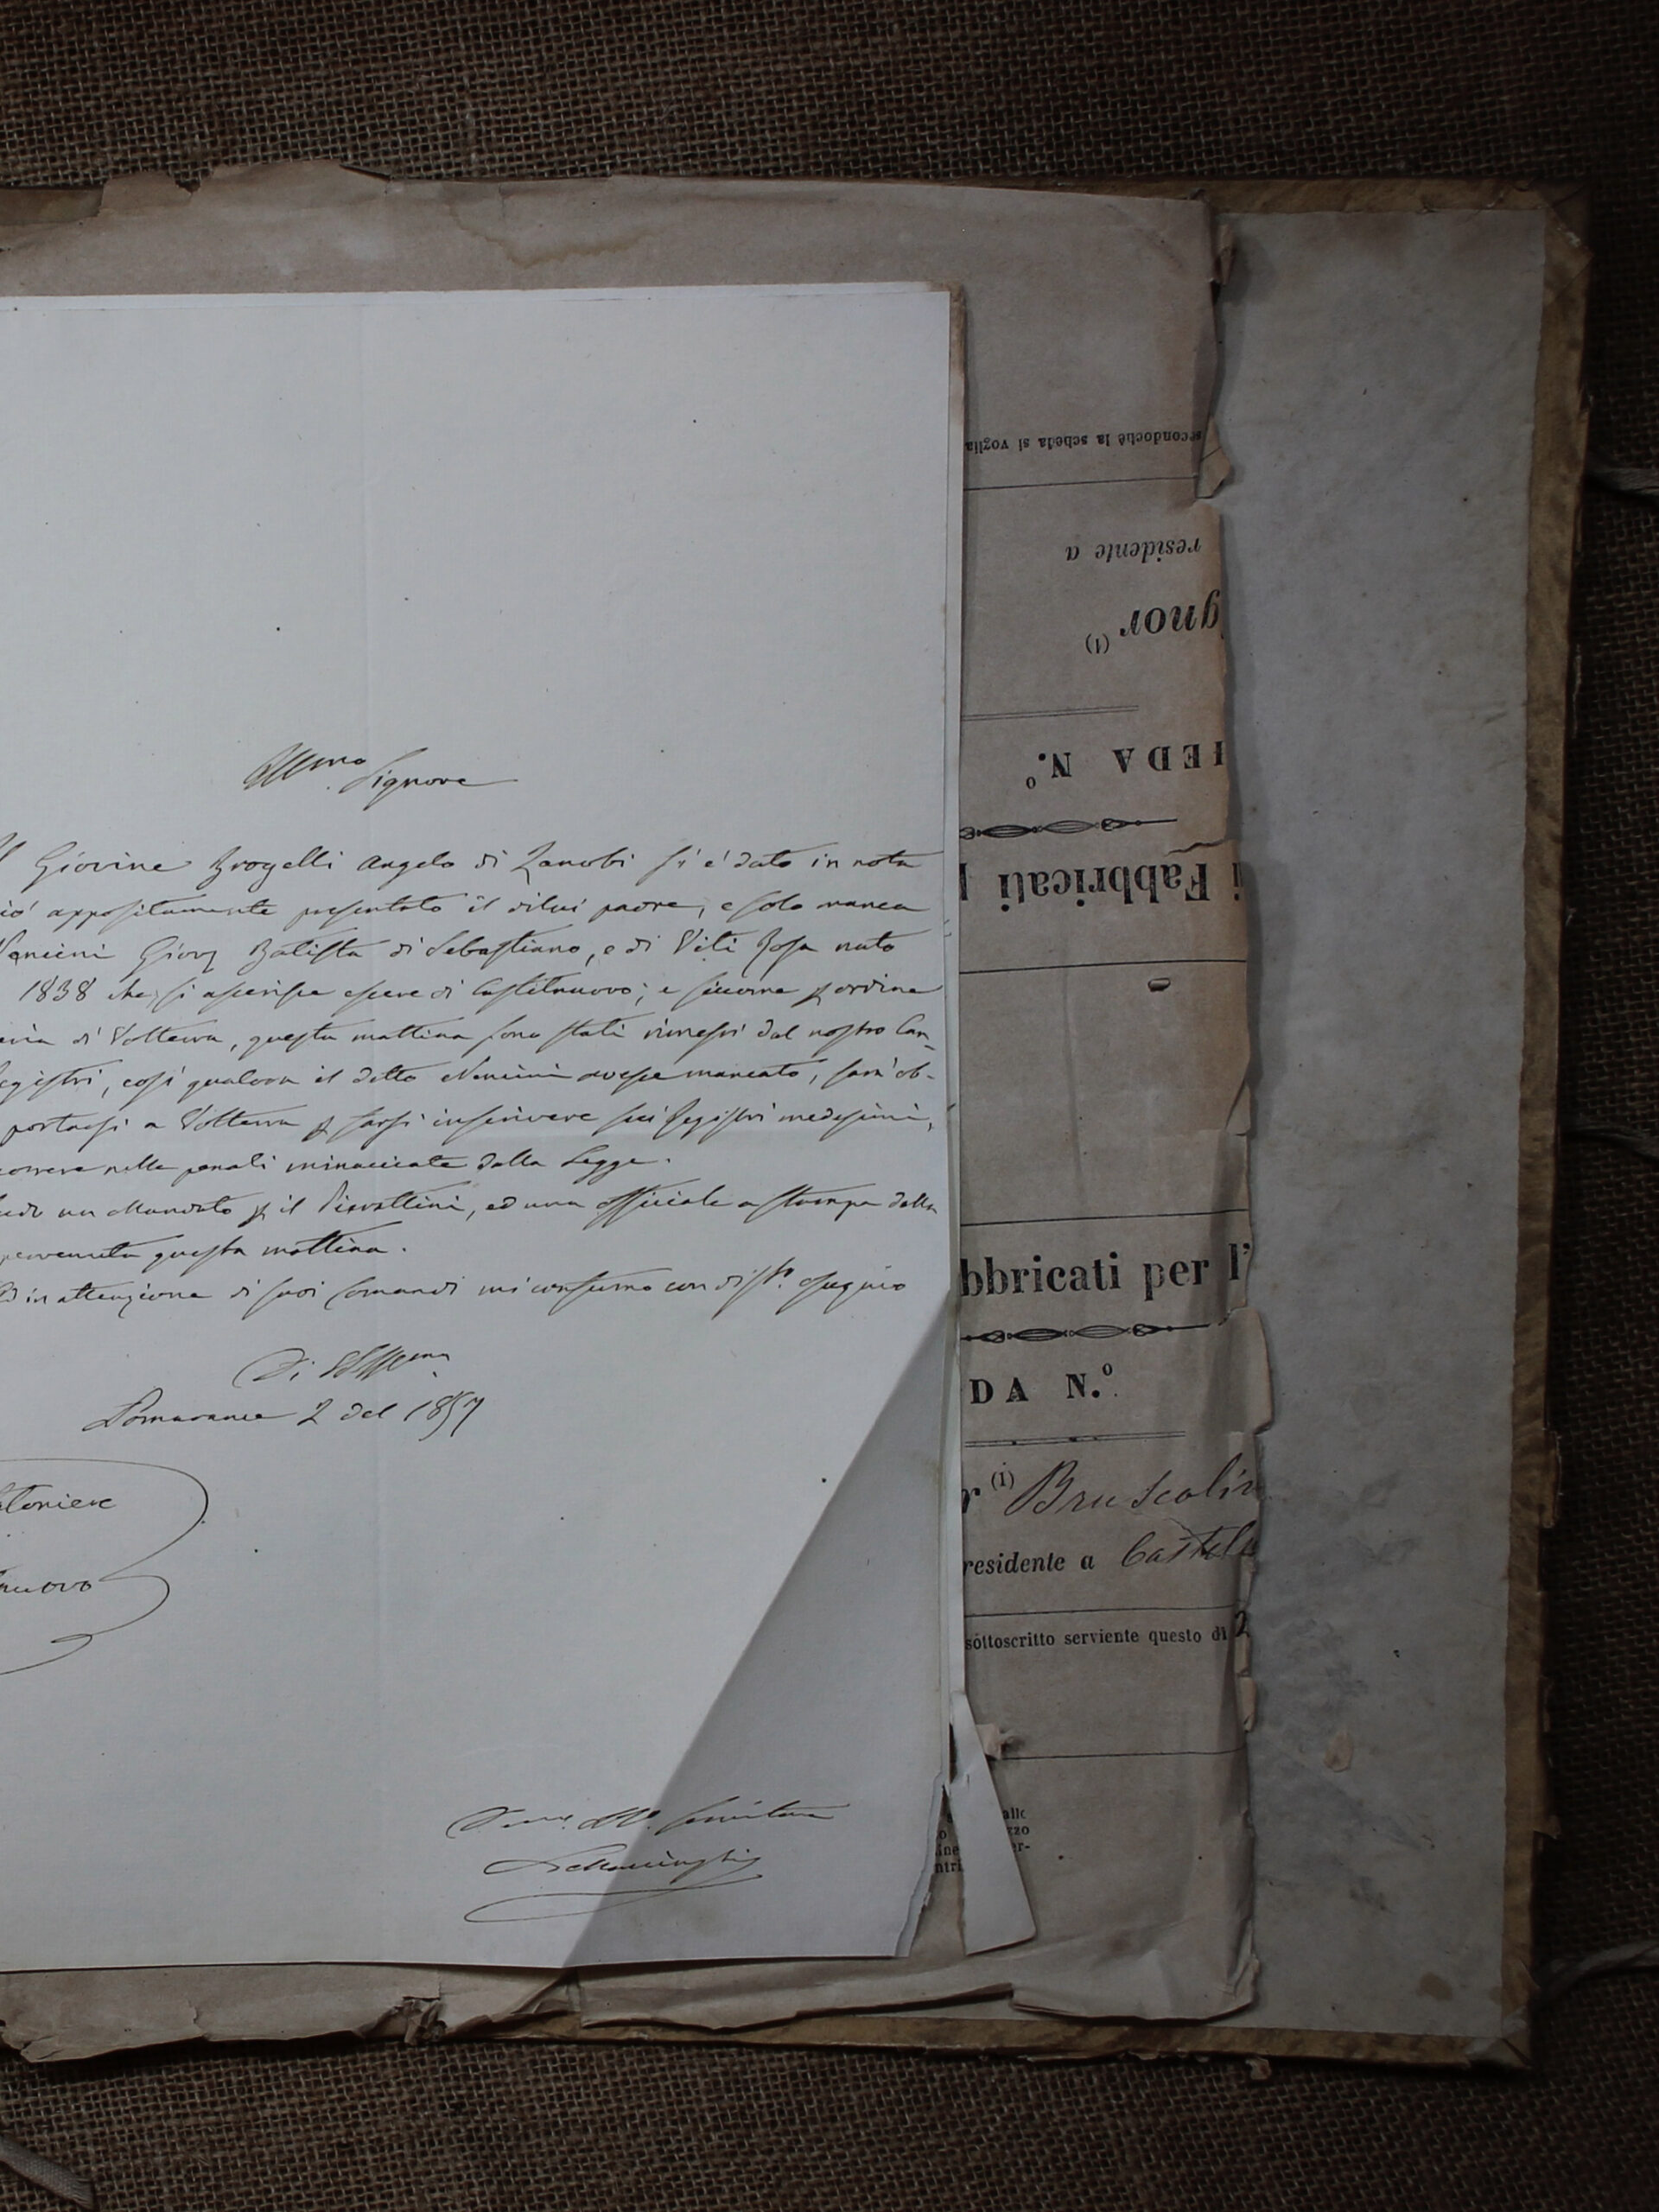 Illmo. Signore
Giovine Brogelli Angelo di Zanobi si è dato in nota
appositamente presentato il dilui padre, e solo manca
Nencini Giov Batista di Sebastiano, e di Viti Rosa nato
1838 che si asserisce essere di Castelnuovo; e siccome ordine
di Volterra, questa mattina sono stati rimessi dal nostro Can-
egistri, così qualora il detto Nencini avesse mancato, sarà ob-
portarsi a Volterra farsi inscrivere sui Registri medesimi,
correre nelle penali minacciate dalla Legge.
un Mandato il Pierattini, ed una officiale a stampa della
pervenuta questa mattina.
Ed in attenzione di suoi Comandi mi confermo con dist. ossequio
Di VS Illma
Pomarance 2 del 1857
nuovo
Servitore
secondochè la scheda si voglia
residente a
gnor (1)
HEDA N.º
i Fabbricati
bbricati per l'
DA N.º
r (1) Bruscolin
residente a Casteln
sottoscritto serviente questo dì 2